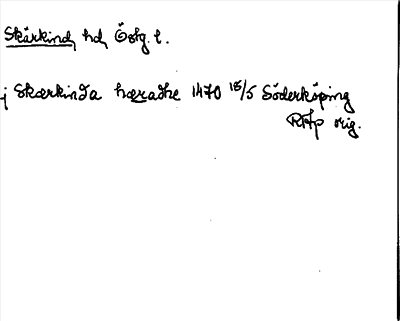 Skärkind, hd, Östg. l.
j Skærkinda hæradhe 1470 18/5 Söderköping
RAp orig.